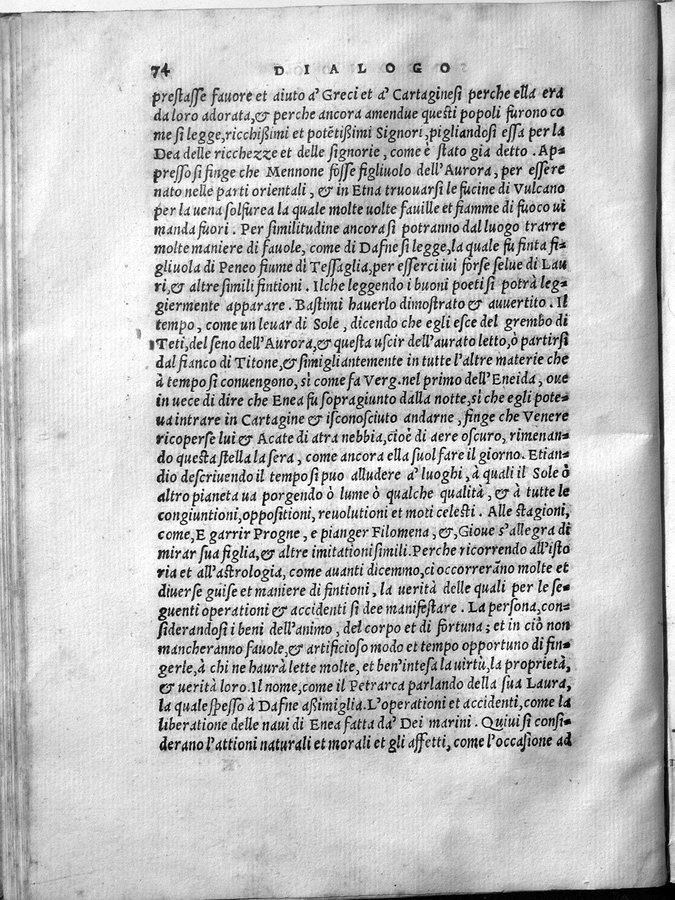 74 DIALOGO
prestasse fauore et aiuto a' Greci et a' Cartaginesi perche ella era
da loro adorata,& perche ancora amendue questi popoli furono co
me si legge,ricchißimi et potẽtißimi Signori,pigliandosi essa per la
Dea delle ricchezze et delle signorie, come è stato gia detto. Ap-
presso si finge che Mennone fosse figliuolo dell'Aurora, per essere
nato nelle parti orientali, & in Etna truouarsi le fucine di Vulcano
per la uena solfurea la quale molte uolte fauille et fiamme di fuoco ui
manda fuori. Per similitudine ancora si potranno dal luogo trarre
molte maniere di fauole, come di Dafne si legge,la quale fu finta fi-
gliuola di Peneo fiume di Tessaglia,per esserci iui forse selue di Lau
ri,& altre simili fintioni. Ilche leggendo i buoni poeti si potrà leg-
giermente apparare. Bastimi hauerlo dimostrato & auuertito. Il
tempo, come un leuar di Sole, dicendo che egli esce del grembo di
Teti,del seno dell'Aurora,& questa uscir dell'aurato letto,ò partirsi
dal fianco di Titone,& simigliantemente in tutte l'altre materie che
à tempo si conuengono, sì come fa Verg.nel primo dell'Eneida, oue
in uece di dire che Enea fu sopragiunto dalla notte,sì che egli pote-
ua intrare in Cartagine & isconosciuto andarne, finge che Venere
ricoperse lui & Acate di atra nebbia,cioè di aere oscuro, rimenan-
do questa stella la sera, come ancora ella suol fare il giorno. Etian-
dio descriuendo il tempo si puo alludere a' luoghi, à quali il Sole ò
altro pianeta ua porgendo ò lume ò qualche qualità, & à tutte le
congiuntioni,oppositioni, reuolutioni et moti celesti. Alle stagioni,
come, E garrir Progne, e pianger Filomena, &, Gioue s'allegra di
mirar sua figlia,& altre imitationi simili.Perche ricorrendo all'isto
ria et all'astrologia, come auanti dicemmo,ci occorrerãno molte et
diuerse guise et maniere di fintioni, la uerità delle quali per le se-
guenti operationi & accidenti si dee manifestare. La persona,con-
siderandosi i beni dell'animo, del corpo et di fortuna; et in ciò non
mancheranno fauole,& artificioso modo et tempo opportuno di fin-
gerle,à chi ne haurà lette molte, et ben'intesa la uirtù,la proprietà,
& uerità loro.Il nome,come il Petrarca parlando della sua Laura,
la quale spesso à Dafne aßimiglia.L'operationi et accidenti, come la
liberatione delle naui di Enea fatta da' Dei marini. Quiui si consi-
derano l'attioni naturali et morali et gli affetti, come l'occasione ad